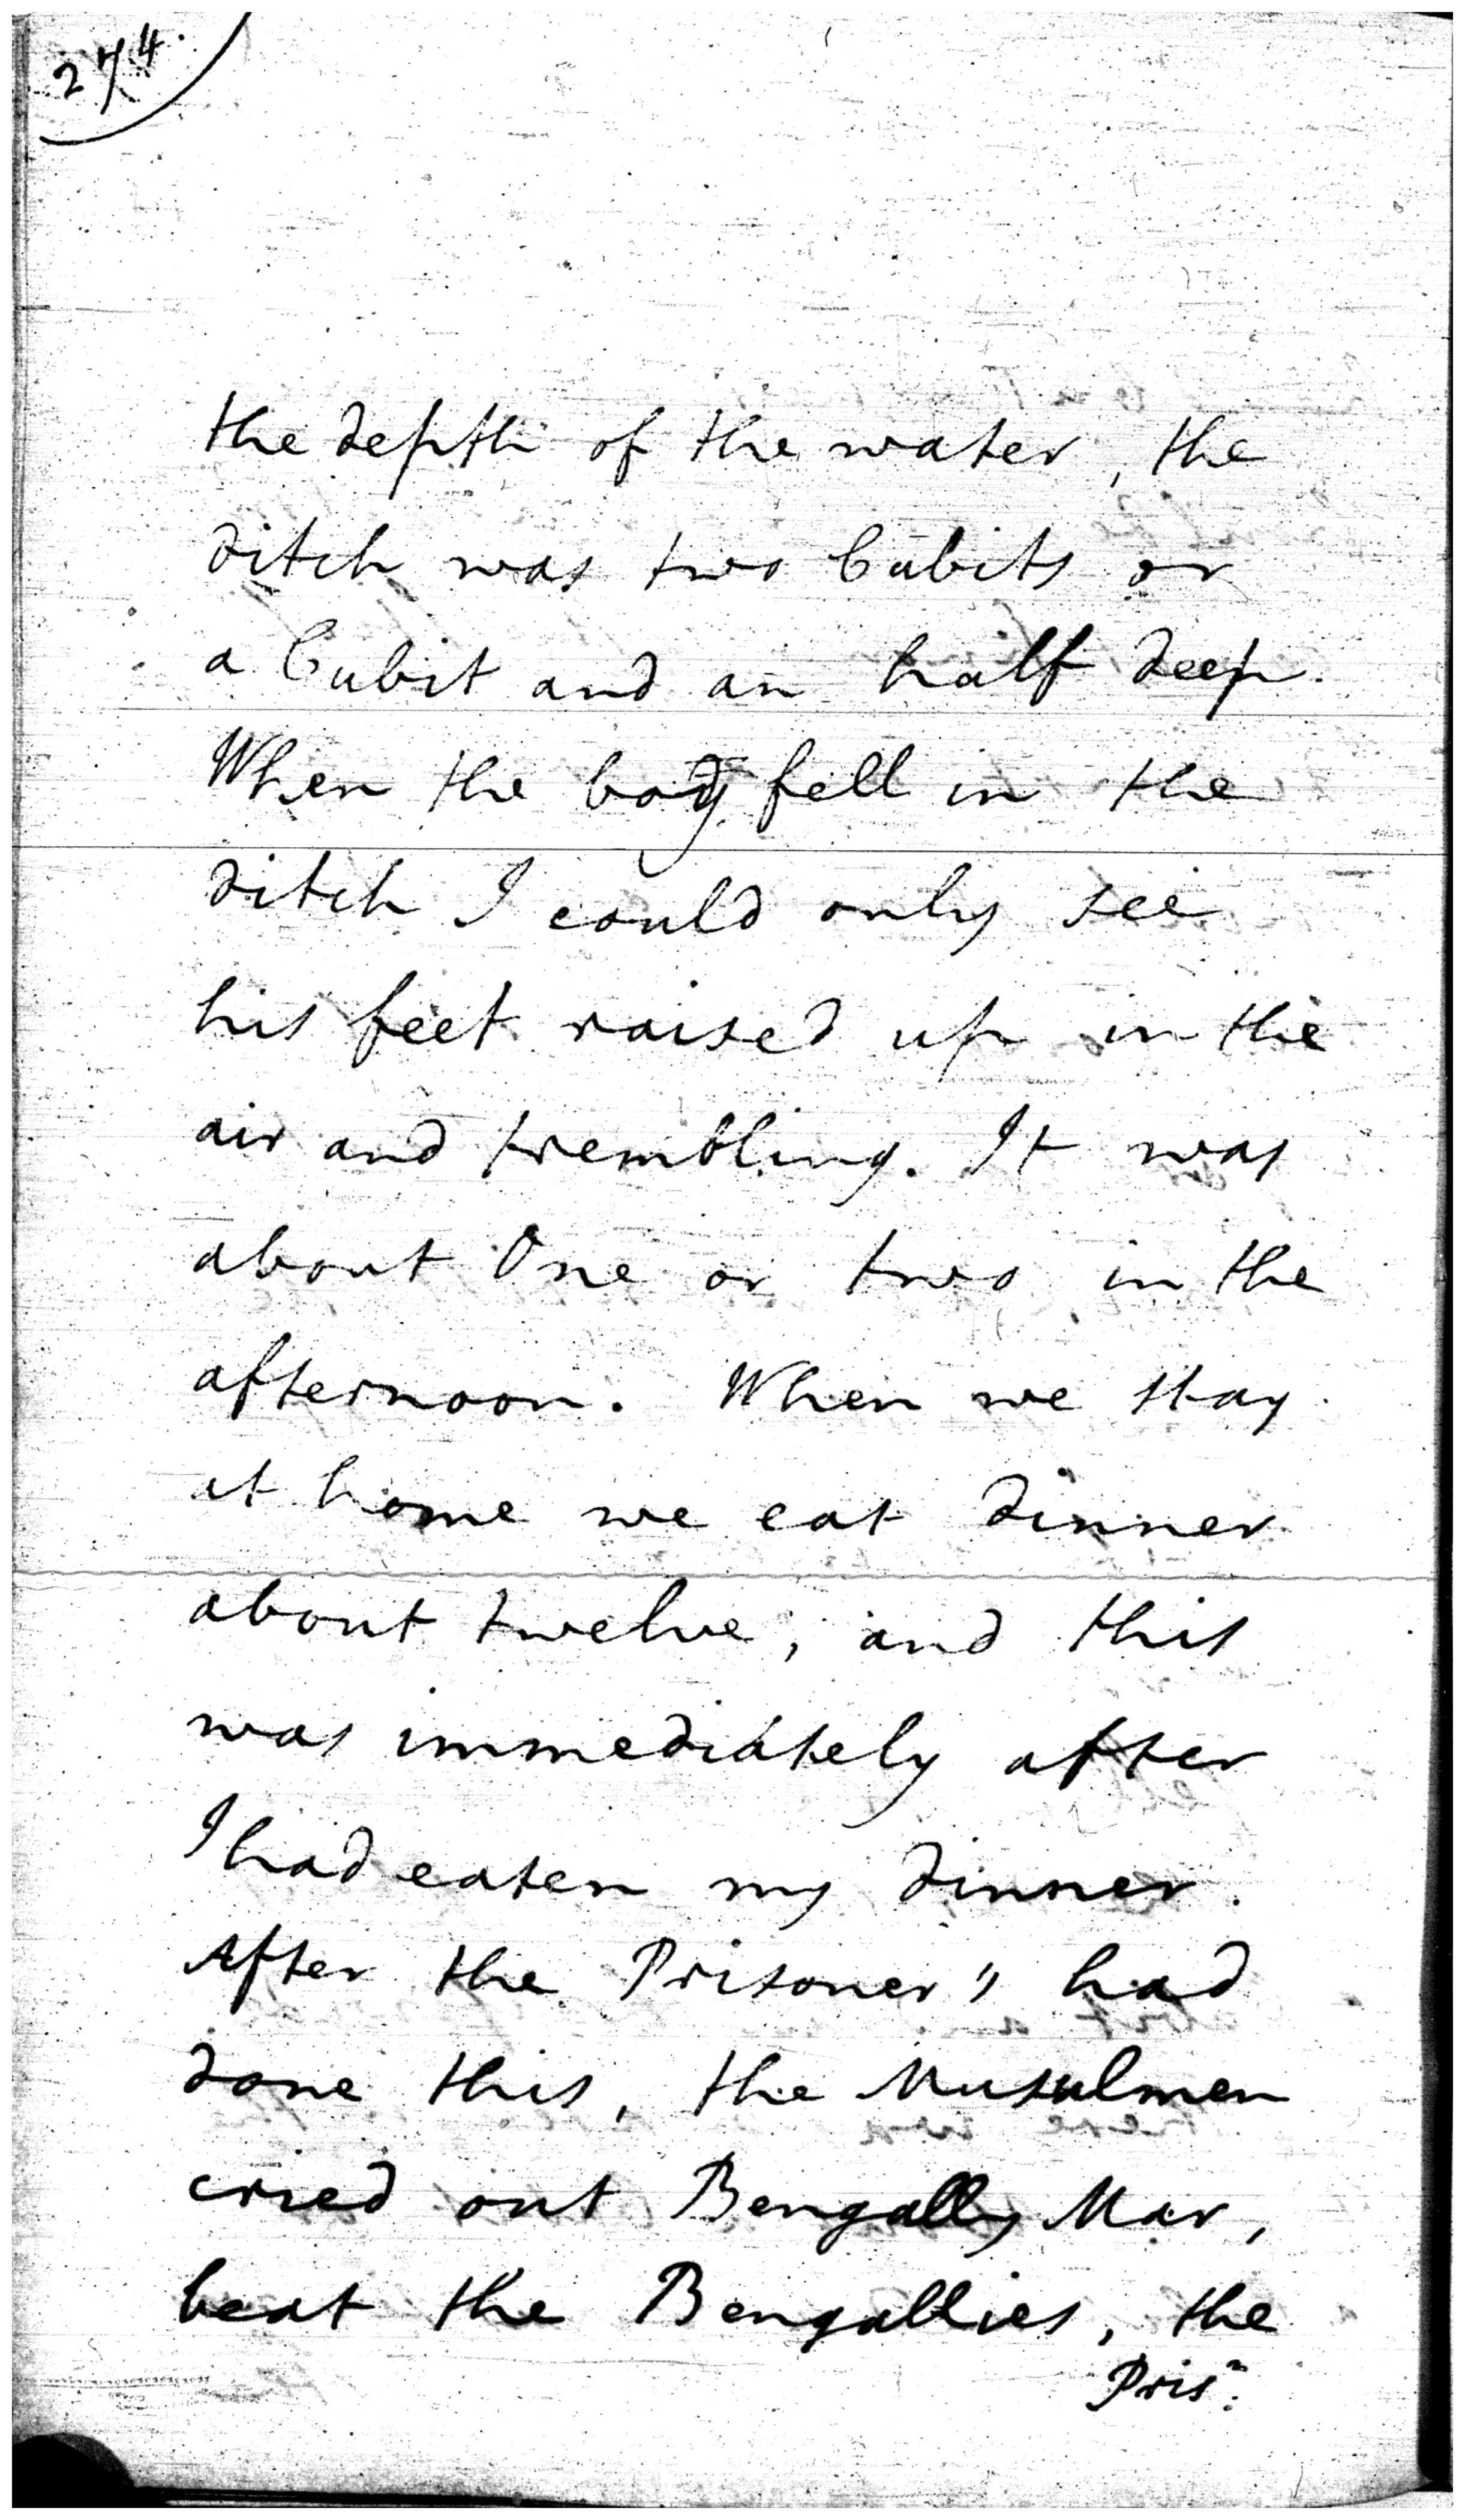 274.
the depth of the water, the
ditch was two Cubits or
a Cubit and an half deep.
When the body fell in the
ditch I could only see
his feet raised up in the
air and trembling. It was
about One or two in the
afternoon. When we stay
at home we eat dinner
about twelve, and this
was immediately after
I had eaten my dinner.
After the Prisoner's had
done this, the Musulmen
cried out Bengally Mar,
beat the Bengallies, the
Prisⁿ.